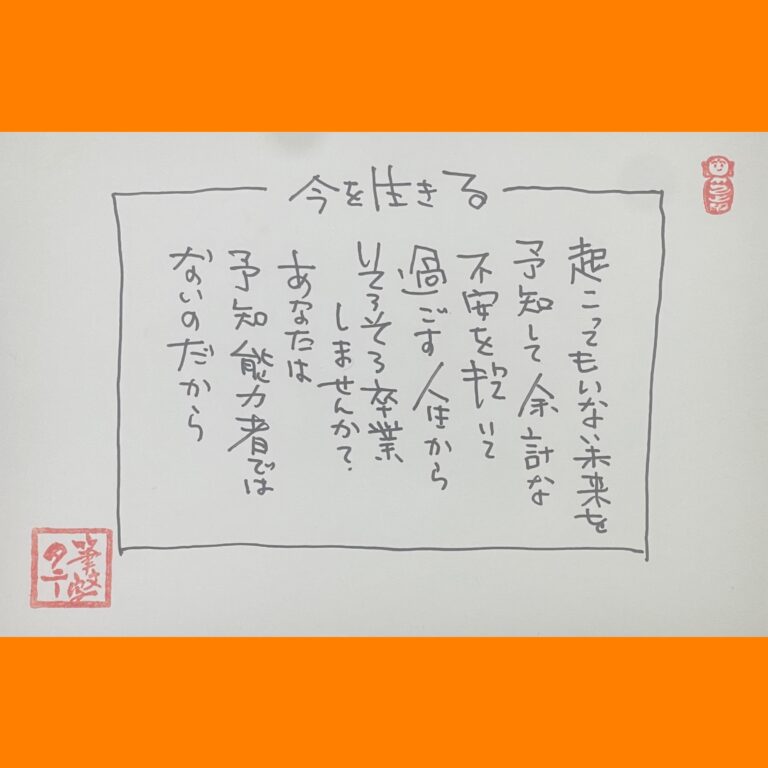 今を生きる
起こってもいない未来を
予知して余計な
不安を
過ごす人生から
そろそろ卒業
しませんか?
あなたは
予知能力者では
ないのだから